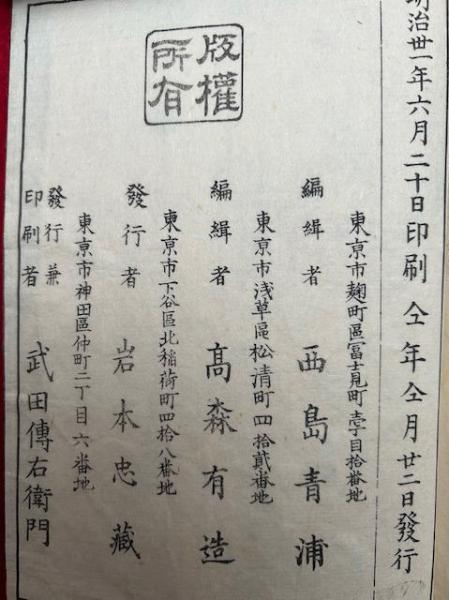 明治丗一年六月二十日印刷仝年仝月廿二日發行
東亰市麹町區冨士見町壱丁目拾番地
編緝者 西島青浦
東亰市浅草區松清町四拾貳番地
編緝者 髙森有造
東亰市下谷區北稲荷町四拾八番地
發行者 岩本忠藏
東亰市神田區仲町二丁目六番地
發行兼
印刷者 武田傳右衛門
版權
所有